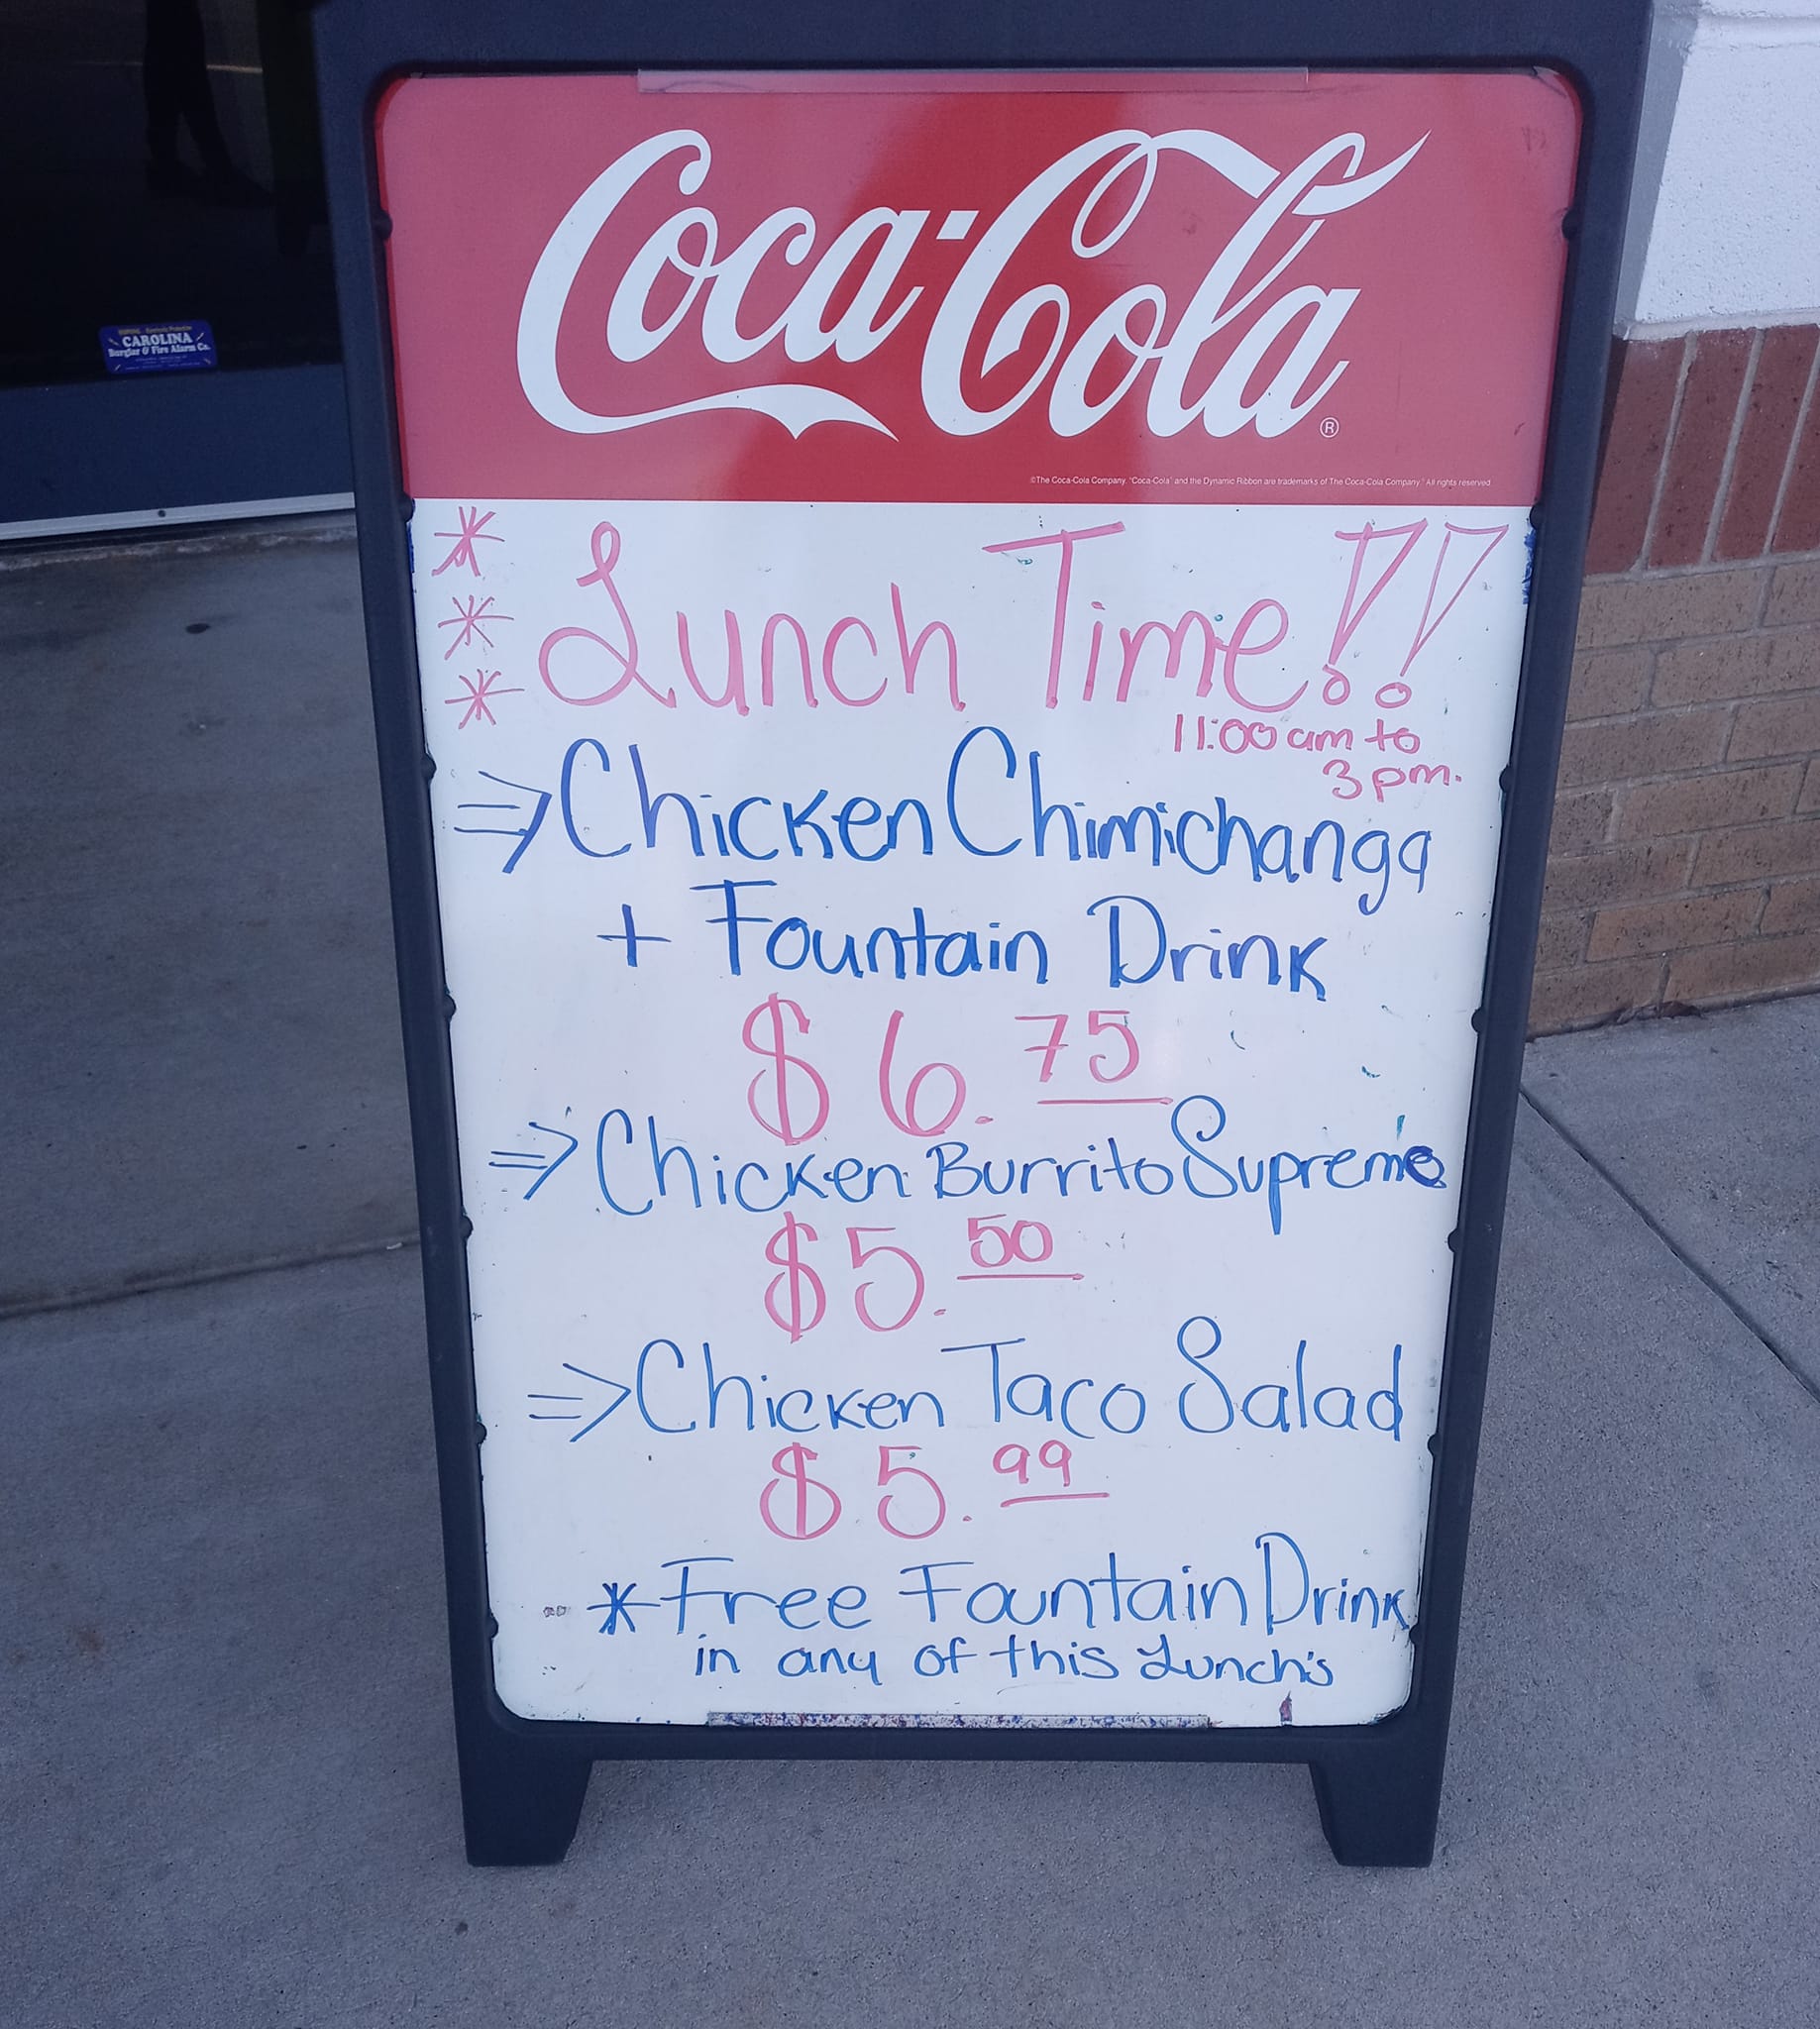 Coca-Cola®
©The Coca-Cola Company. "Coca-Cola" and the Dynamic Ribbon are trademarks of The Coca-Cola Company. All rights reserved
* Lunch Time!!
*
*
11:00 am to
3 pm.
⇒ Chicken Chimichanga
+ Fountain Drink
$6.75
⇒ Chicken Burrito Supreme
$5.50
⇒ Chicken Taco Salad
$5.99
* Free Fountain Drink
in any of this Lunch's
CAROLINA
Burglar & Fire Alarm Co.